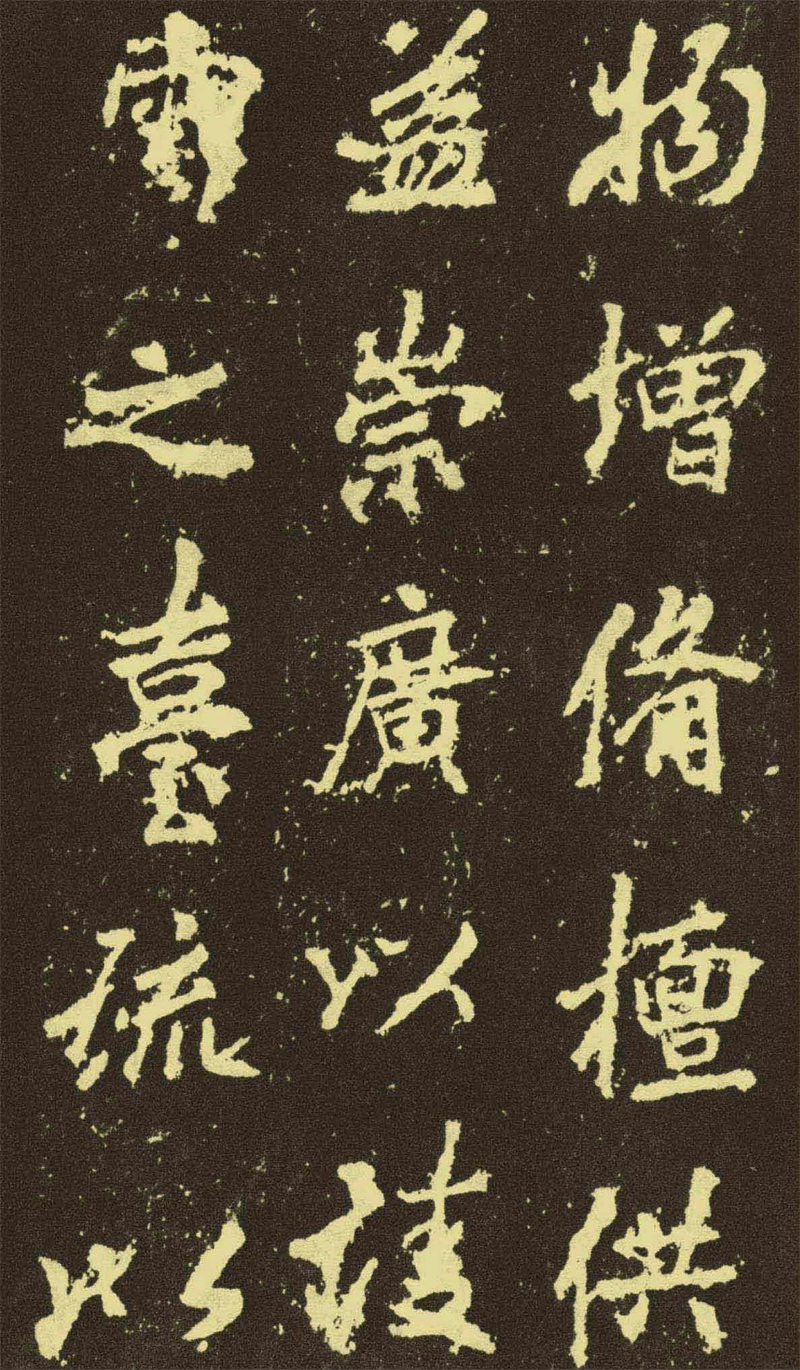 物增俻檀供
益崇廣以陵
雲之臺疏以